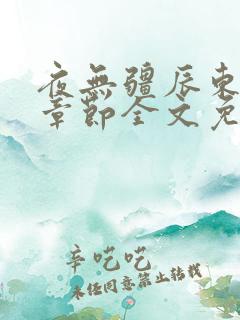 夜无疆辰东
章节全文免
辛吃吃
未经同意禁止转载